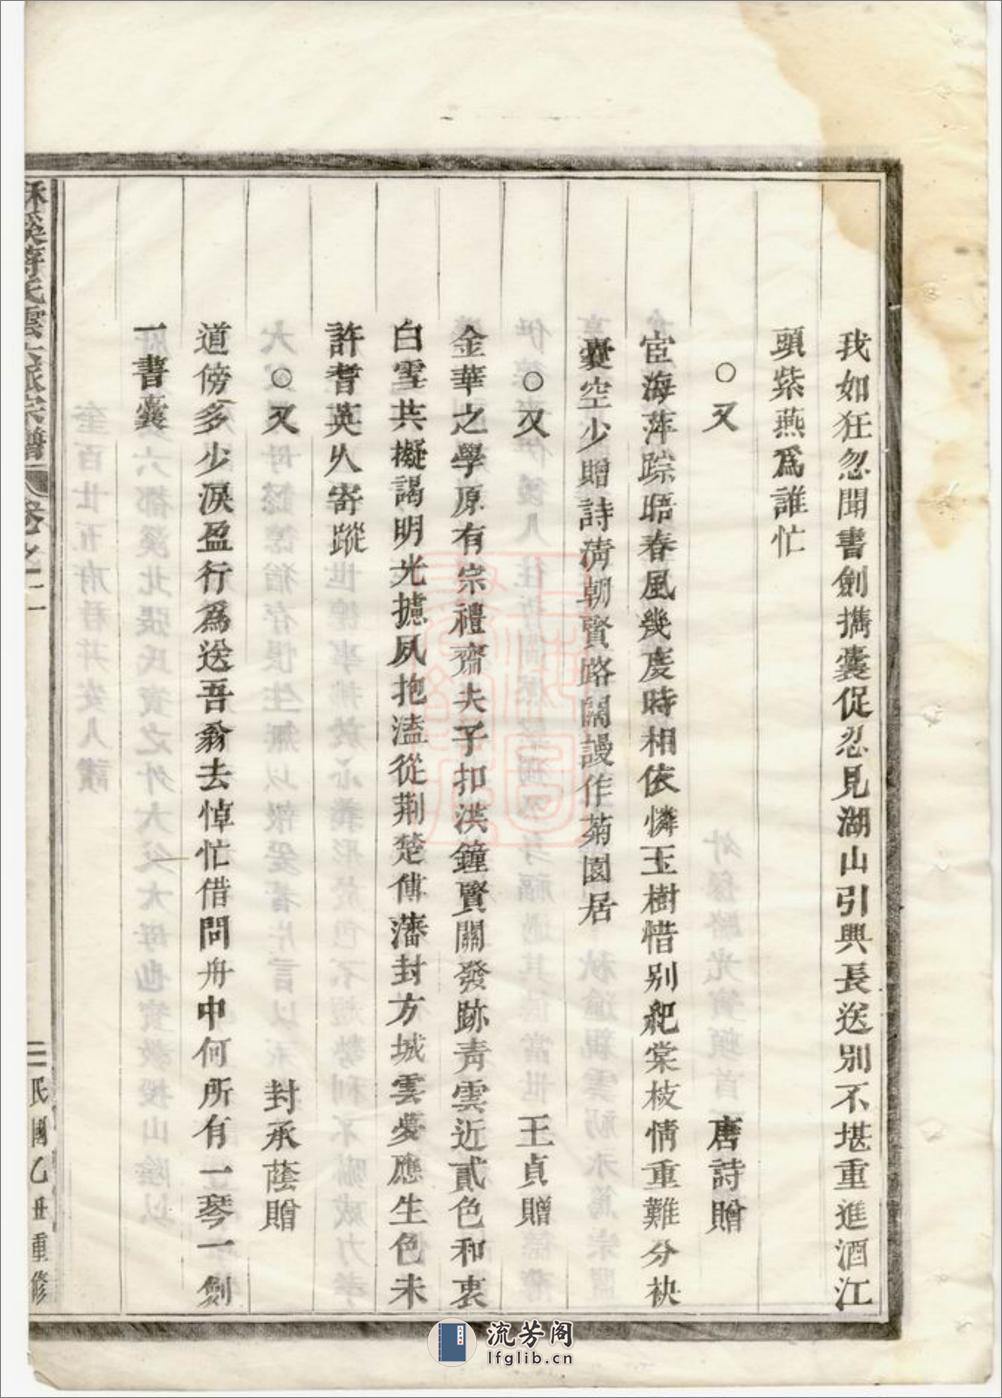 我如狂忽聞書劍攜囊促忍見湖山引興長送別不堪重進酒江
頭紫燕爲誰忙
○又 唐詩贈
宦海萍踪晤春風幾度時相依憐玉樹惜別紀棠枝情重難分袂
囊空少贈詩淸朝賢路闊謾作菊園居
○又 王貞贈
金華之學原有宗禮齋夫子扣洪鐘賢關發跡靑雲近貳色和衷
白雪共擬謁明光攄夙抱溘從荆楚傅藩封方城雲夢應生色未
許耆英久寄蹤
○又 封承蔭贈
道傍多少淚盈行爲送吾翁去悼忙借問舟中何所有一琴一劍
一書囊
蔣氏雲 派宗譜 卷之二 民國乙丑重修
流芳阁
lfglib.cn